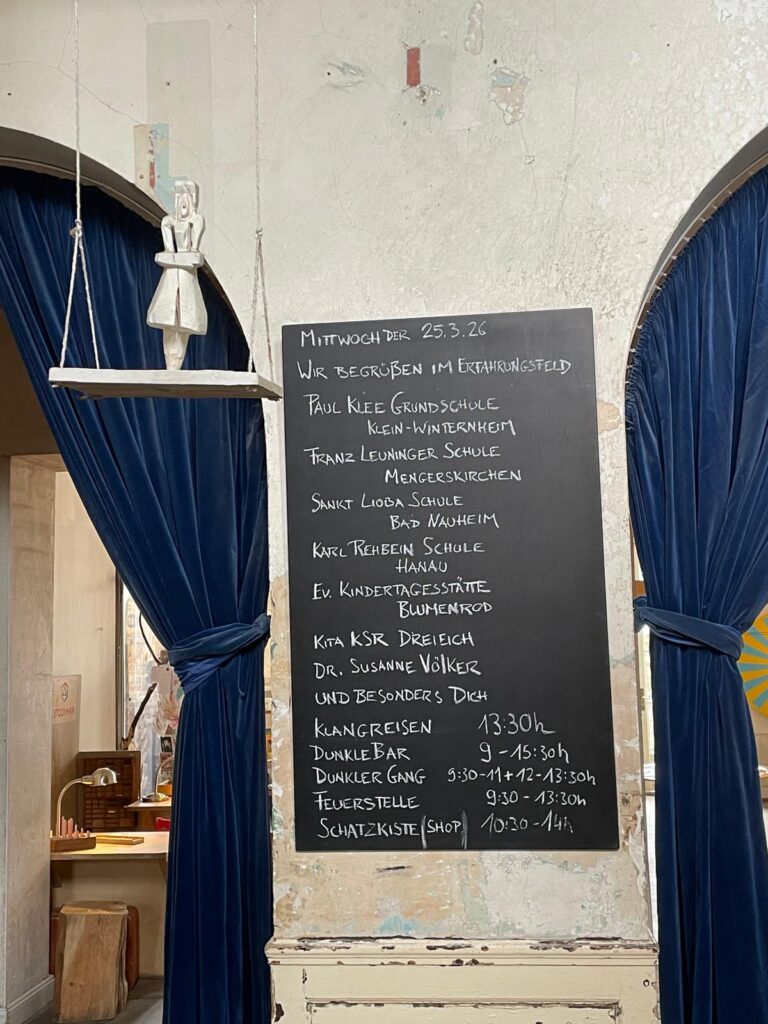 MITTWOCH DER 25.3.26
WIR BEGRÜßEN IM ERFAHRUNGSFELD
PAUL KLEE GRUNDSCHULE
KLEIN-WINTERNHEIM
FRANZ LEUNINGER SCHULE
MENGERSKIRCHEN
SANKT LIOBA SCHULE
BAD NAUHEIM
KARL REHBEIN SCHULE
HANAU
EV. KINDERTAGESSTÄTTE
BLUMENROD
KITA KSR DREIEICH
DR. SUSANNE VÖLKER
UND BESONDERS DICH
KLANGREISEN 13:30h
DUNKLE BAR 9-15:30h
DUNKLER GANG 9:30-11+12-13:30h
FEUERSTELLE 9:30-13:30h
SCHATZKISTE (SHOP) 10:30-14h
STOCKMAR